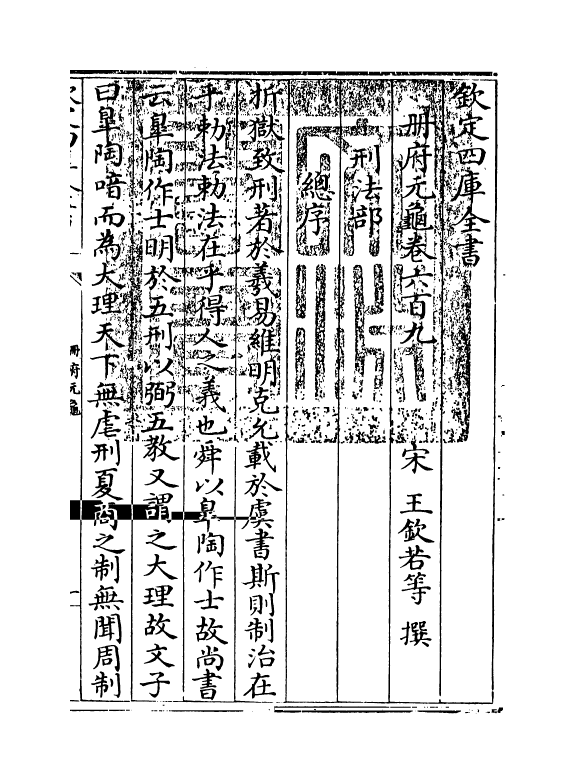 欽定四庫全書
冊府元龜卷六百九　宋　王欽若等　撰
刑法部
總序
折獄致刑著於羲易維明克允載於虞書斯則制治在
乎勅法勅法在乎得人之義也舜以臯陶作士故尚書
云臯陶作士明於五刑以弼五教又謂之大理故文子
曰臯陶喑而為大理天下無虐刑夏商之制無聞周制
冊府元龜